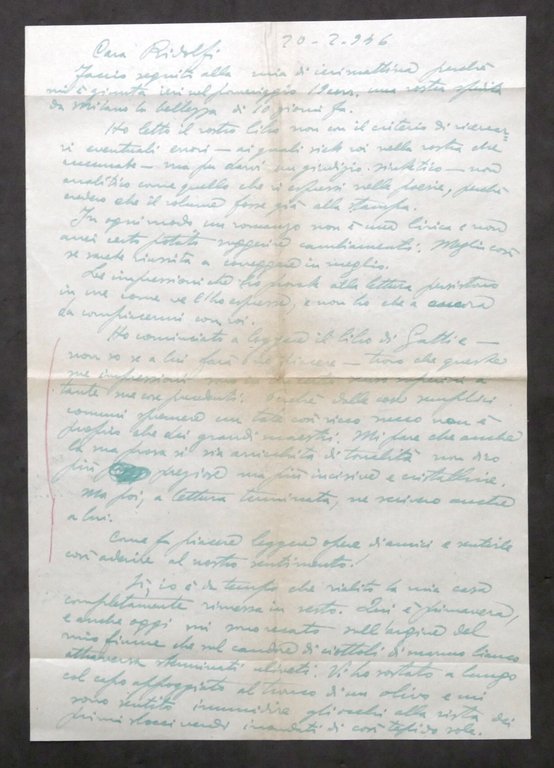 20-2-946
Cara Ridolfi
Faccio seguito alla mia di ieri mattina perché
mi è giunta ieri nel pomeriggio 19 corr. una vostra spedita
da Milano la bellezza di 10 giorni fa.
Ho letto il vostro libro non con il criterio di ricerca-
re eventuali errori – ai quali voi nella vostra che
– ma per darvi un giudizio sintetico – non
analitico come quello che vi espressi nelle poesie, perché
credevo che il volume fosse già alle stampe.
In ogni modo, un romanzo non è una lirica e non
avrei certo potuto suggerire cambiamenti. Meglio così
se siete riuscita a correggere in meglio.
Le impressioni che ho avute alla lettura persistono
in me come ve l'ho espresse, e non ho che a ancora
da compiacermi con voi.
Ho cominciato a leggere il libro di Gatti e –
non so se a lui farà piacere – trovo che questa
sue impressioni superiori a
tante sue cose precedenti. Perché dalle cose semplici
comuni spremere un tale così ricco succo non è
proprio che dei grandi maestri. Mi pare che anche
la sua prosa si sia arricchita di tonalità non dico
più preziose ma più incisive e cristalline.
Ma poi, a lettura terminata, ne scriverò anche
a lui.
Come fa piacere leggere opere di amici e sentirle
così aderire al nostro sentimento!
Sì, io è da tempo che riabito la mia casa
completamente rimessa in sesto. Qui è primavera,
e anche oggi mi sono recato sull'argine del
mio fiume che nel candore di ciottoli di marmo bianco
attraversa sterminati uliveti. Vi ho sostato a lungo
col capo appoggiato al tronco di un olivo e mi
sono sentito inumidire gli occhi alla vista dei
primi stocci verdi inondati di così tepido sole.